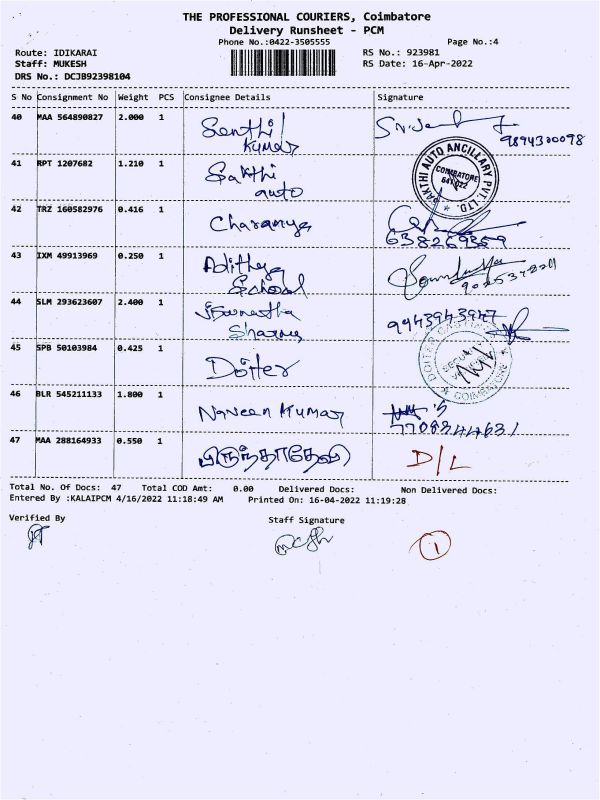 THE PROFESSIONAL COURIERS, Coimbatore
Delivery Runsheet - PCM
Phone No.:0422-3505555 Page No.:4
Route: IDIKARAI RS No.: 923981
Staff: MUKESH RS Date: 16-Apr-2022
DRS No.: DCJB92398104
S No Consignment No Weight PCS Consignee Details Signature
40 MAA 564890827 2.000 1 Senthil
Kumar 9894300098
41 RPT 1207682 1.210 1 Sakthi
auto SAKTHI AUTO ANCILLARY PVT. LTD. COIMBATORE
42 TRZ 160582976 0.416 1 Charanya
6382269359
43 IXM 49913969 0.250 1 Adithya
School
44 SLM 293623607 2.400 1 9943943947
Sharma
45 SPB 50103984 0.425 1 Doiter COIMBATORE
46 BLR 545211133 1.800 1 Naveen Kumar
7708344631
47 MAA 288164933 0.550 1 பிருந்தாதேவி D/L
Total No. Of Docs: 47 Total COD Amt: 0.00 Delivered Docs: Non Delivered Docs:
Entered By :KALAIPCM 4/16/2022 11:18:49 AM Printed On: 16-04-2022 11:19:28
Verified By Staff Signature
1